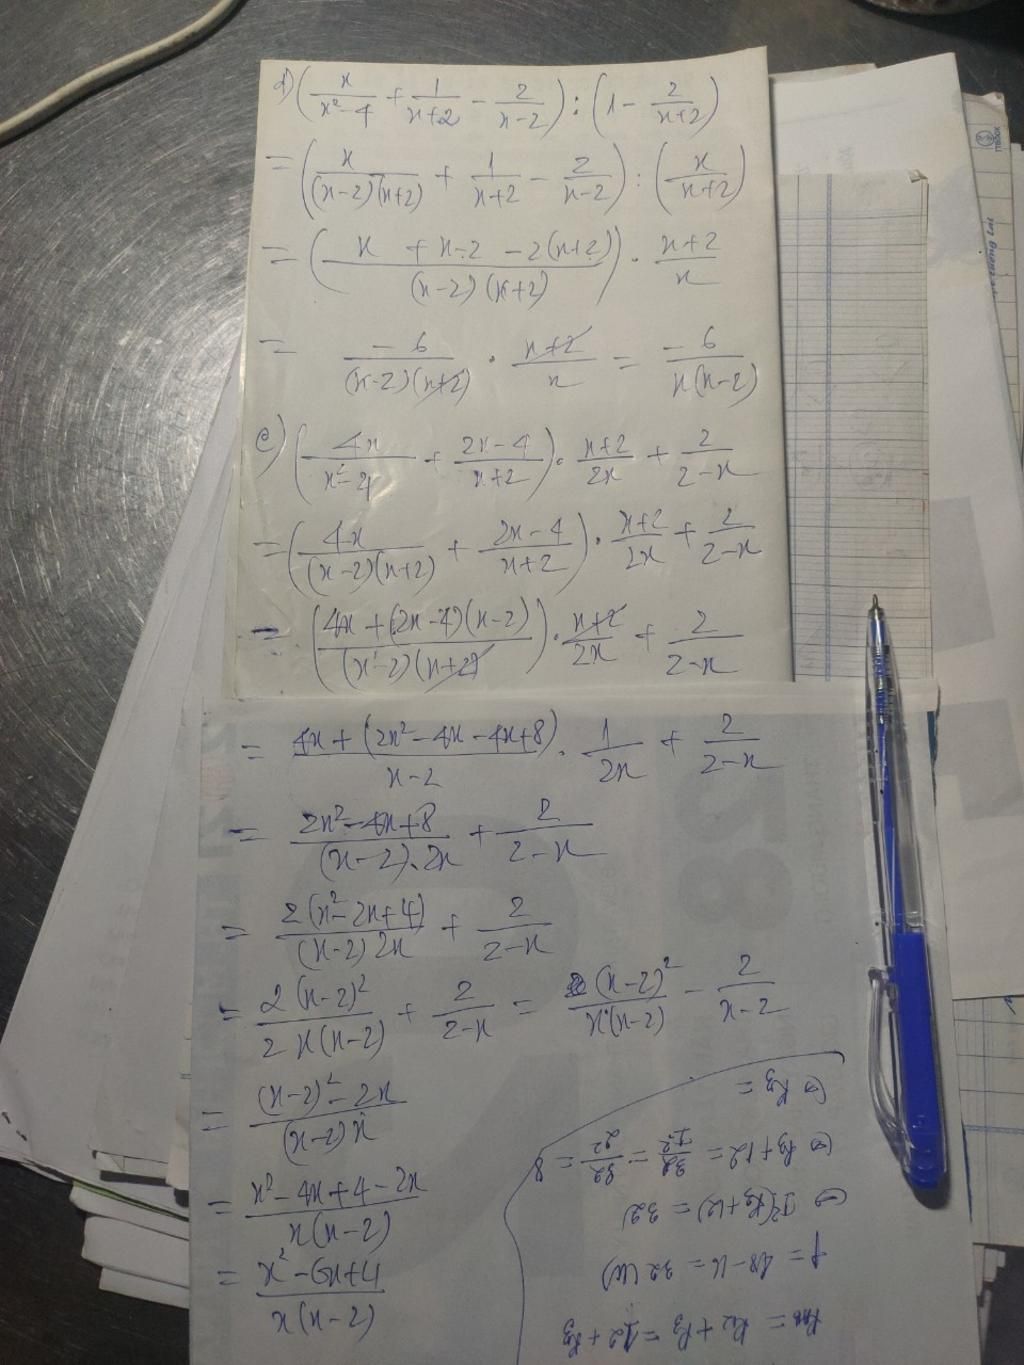 d) (x/(x²-4) + 1/(x+2) - 2/(x-2)) : (1 - 2/(x+2))
= (x/((x-2)(x+2)) + 1/(x+2) - 2/(x-2)) : (x/(x+2))
= ((x + x-2 - 2(x+2))/((x-2)(x+2))) . (x+2)/x
= -6/((x-2)(x+2)) . (x+2)/x = -6/(x(x-2))
e) (4x/(x²-4) + (2x-4)/(x+2)) . (x+2)/2x + 2/(2-x)
= (4x/((x-2)(x+2)) + (2x-4)/(x+2)) . (x+2)/2x + 2/(2-x)
= ((4x+(2x-4)(x-2))/((x-2)(x+2))) . (x+2)/2x + 2/(2-x)
= (4x+(2x²-4x-4x+8))/(x-2) . 1/2x + 2/(2-x)
= (2x²-4x+8)/((x-2).2x) + 2/(2-x)
= 2(x²-2x+4)/((x-2)2x) + 2/(2-x)
= 2(x-2)²/(2x(x-2)) + 2/(2-x) = (x-2)²/(x(x-2)) - 2/(x-2)
= ((x-2)²-2x)/((x-2)x)
= (x²-4x+4-2x)/(x(x-2))
= (x²-6x+4)/(x(x-2))
= R₂ + R₃ = 12 + R₃
= 48-16 = 32 (W)
⇔ I²(R₃+12) = 32
⇔ R₃+12 = 32/I² = 32/2² = 8
⇔ R₃ =